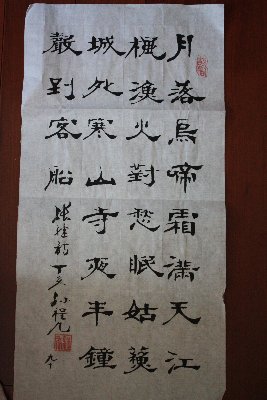 月落烏啼霜滿天江
楓漁火對愁眠姑蘇
城外寒山寺夜半鐘
聲到客船
張繼詩 丁亥
九十